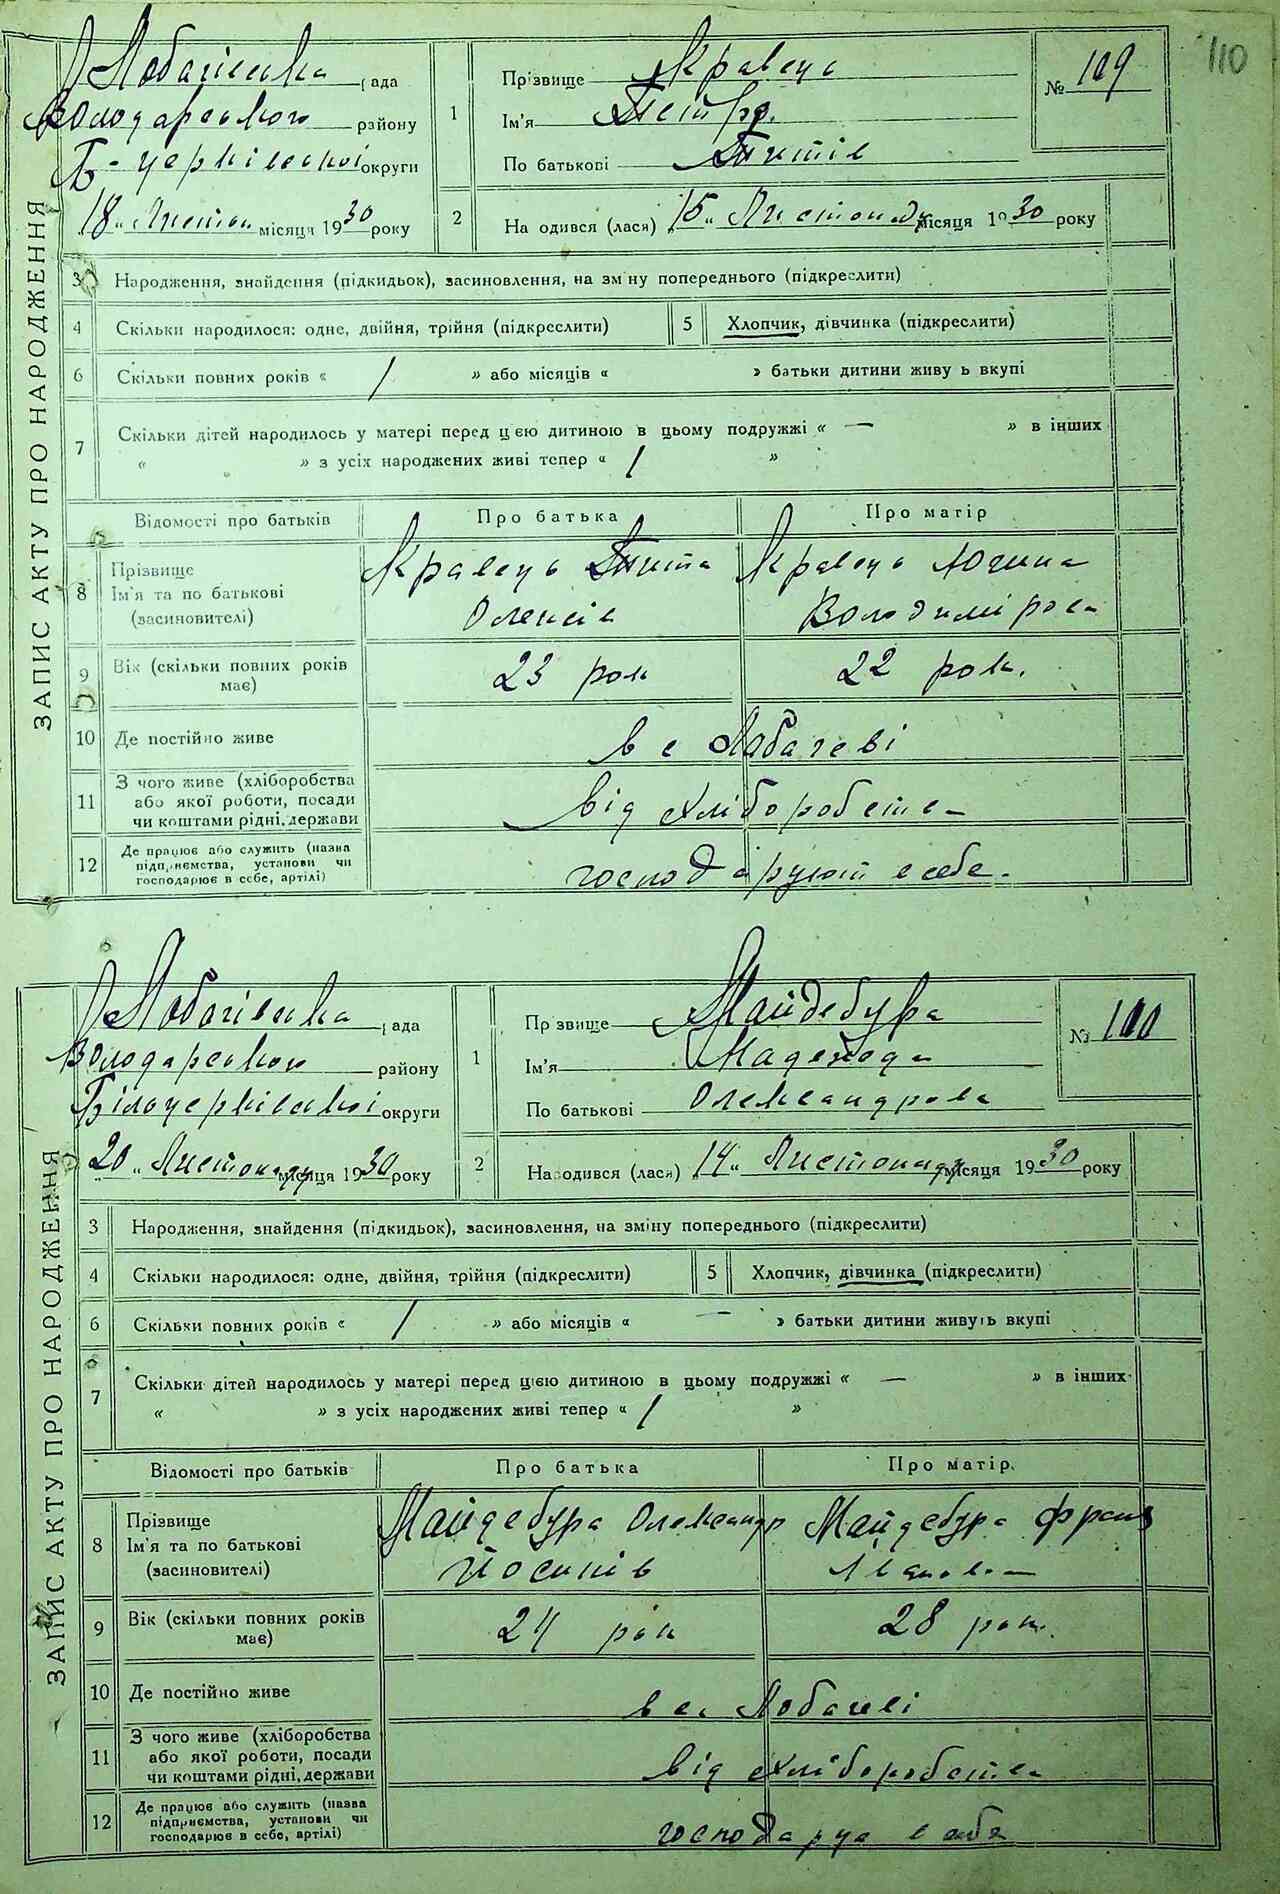 110
ЗАПИС АКТУ ПРО НАРОДЖЕННЯ
Лобачівська рада
Володарського району
Б-церківської округи
18 „ Листоп місяця 1930 року
1 Прізвище Кравець
Ім'я Петро.
По батькові Титів
№ 109
2 На одився (лася) „15„ Листопаду місяця 1930 року
3 Народження, знайдення (підкидьок), засиновлення, на зм ну попереднього (підкреслити)
4 Скільки народилося: одне, двійня, трійня (підкреслити)
5 Хлопчик, дівчинка (підкреслити)
6 Скільки повних років « / » або місяців « » батьки дитини живу ь вкупі
7 Скільки дітей народилось у матері перед цією дитиною в цьому подружжі « — » в інших
« » з усіх народжених живі тепер « / »
Відомості про батьків Про батька Про матір
8 Прізвище
Ім'я та по батькові
(засиновителі)
Кравець Тита
Олексів
Кравець
Володимірова
9 Вік (скільки повних років
має)
23 рок 22 рок.
10 Де постійно живе в с Лобачеві
11 З чого живе (хліборобства
або якої роботи, посади
чи коштами рідні, держави
від хліборобства
12 Де працює або служить (назва
підприємства, установи чи
господарює в себе, артілі)
господарують в себе.
ЗАПИС АКТУ ПРО НАРОДЖЕННЯ
Лобачівська рада
Володарського району
Білоцерківської округи
20 „ Листопаду місяця 1930 року
1 Пр звище Майдебура
Ім'я Надежда
По батькові Олександрова
№ 110
2 Народився (лася) „14„ Листопаду місяця 1930 року
3 Народження, знайдення (підкидьок), засиновлення, на зміну попереднього (підкреслити)
4 Скільки народилося: одне, двійня, трійня (підкреслити)
5 Хлопчик, дівчинка (підкреслити)
6 Скільки повних років « / » або місяців « — » батьки дитини живуть вкупі
7 Скільки дітей народилось у матері перед цією дитиною в цьому подружжі « — » в інших
« » з усіх народжених живі тепер « / »
Відомості про батьків Про батька Про матір
8 Прізвище
Ім'я та по батькові
(засиновителі)
Майдебура Олександр
Йосипів
Майдебура Франц
Іванова
9 Вік (скільки повних років
має)
24 рок 28 рок.
10 Де постійно живе в с. Лобачеві
11 З чого живе (хліборобства
або якої роботи, посади
чи коштами рідні, держави
від хліборобства
12 Де працює або служить (назва
підприємства, установи чи
господарює в себе, артілі)
господарує в себе